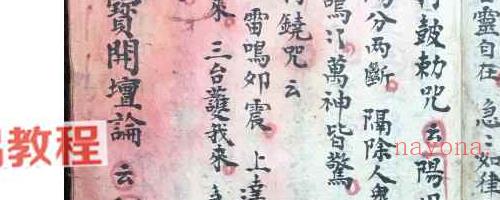 靈自在 急急如律
打鼓勅咒 云 陽
分兩斷 隔除人
鳴汀萬神皆驚
鐃咒云
雷鳴如震 上達
來 三台護我來
寶開壇論 云
教程
nayona.